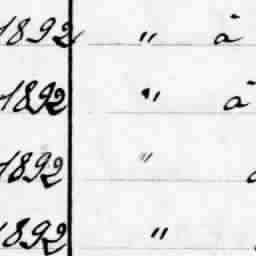 1892 " à
1892 " à
1892 "
1892 "